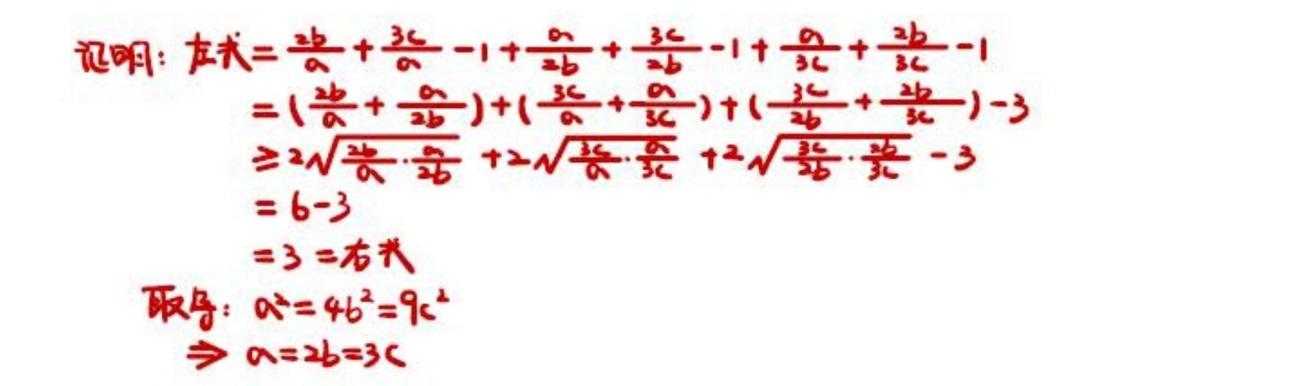 证明: 左式 = 2b/a + 3c/a - 1 + a/2b + 3c/2b - 1 + a/3c + 2b/3c - 1
= (2b/a + a/2b) + (3c/a + a/3c) + (3c/2b + 2b/3c) - 3
≥ 2√(2b/a · a/2b) + 2√(3c/a · a/3c) + 2√(3c/2b · 2b/3c) - 3
= 6 - 3
= 3 = 右式
取等: a² = 4b² = 9c²
⇒ a = 2b = 3c